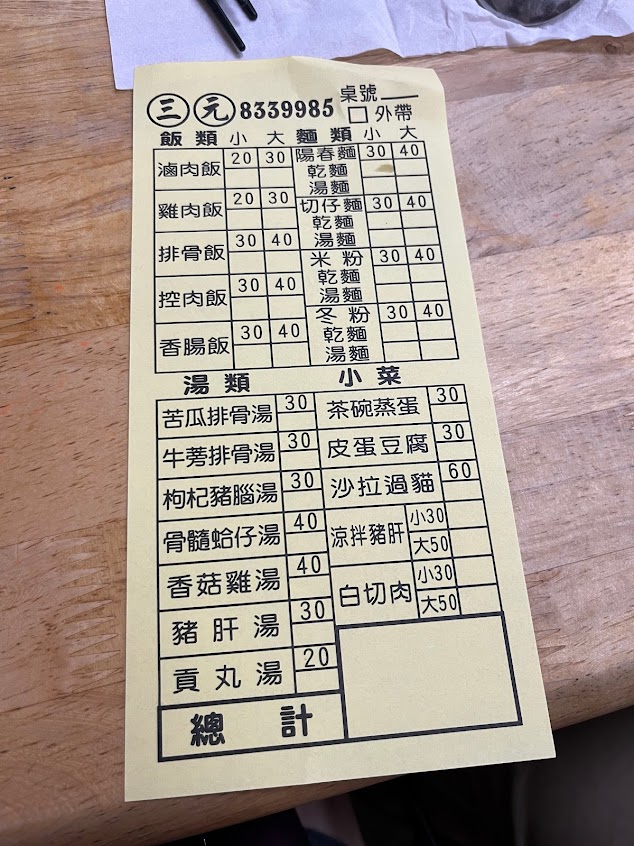 三元 8339985 桌號
□ 外帶
飯類 小 大 麵類 小 大
滷肉飯 20 30
雞肉飯 20 30
排骨飯 30 40
控肉飯 30 40
香腸飯 30 40
陽春麵 30 40
乾麵
湯麵
切仔麵 30 40
乾麵
湯麵
米粉 30 40
乾麵
湯麵
冬粉 30 40
乾麵
湯麵
湯類 小菜
苦瓜排骨湯 30
牛蒡排骨湯 30
枸杞豬腦湯 30
骨髓蛤仔湯 40
香菇雞湯 40
豬肝湯 30
貢丸湯 20
茶碗蒸蛋 30
皮蛋豆腐 30
沙拉過貓 60
涼拌豬肝 小30
大50
白切肉 小30
大50
總計